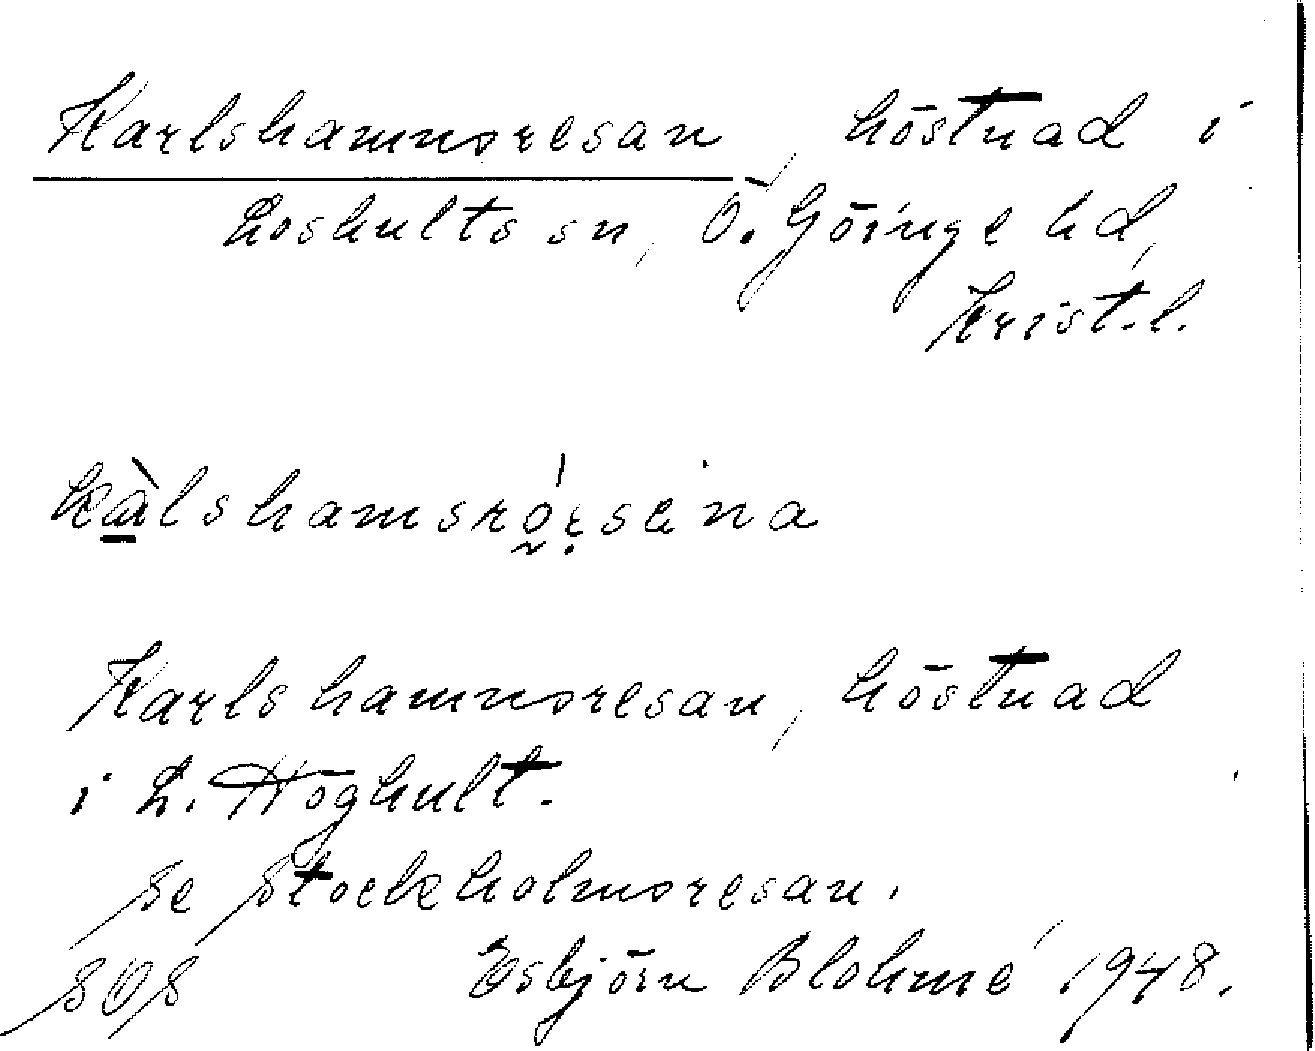 Karlshamnsresan, höstnad i
Loshults sn, Ö. Göinge hd,
Krist.l.
Karlshamnsresan, höstnad
i L. Höghult.
Se Stockholmsresan.
SOS Esbjörn Blohmé 1948.